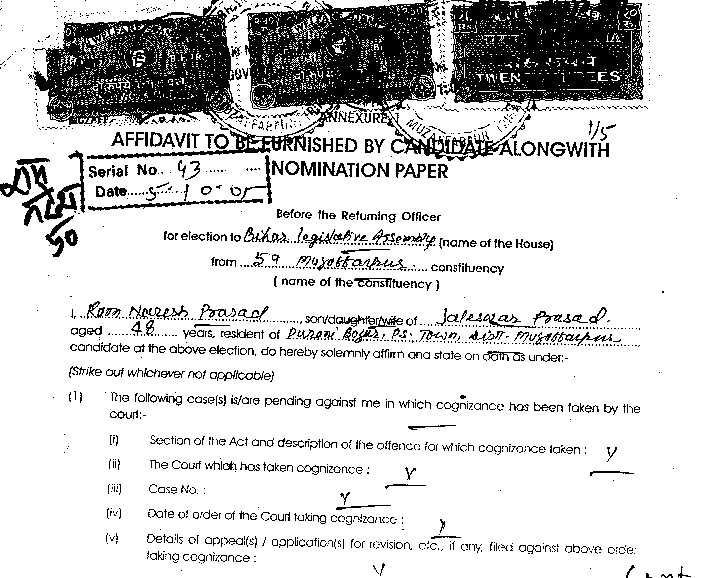 TWENTY RUPEES
ANNEXURE-1
1/5
AFFIDAVIT TO BE FURNISHED BY CANDIDATE ALONGWITH
NOMINATION PAPER
Serial No. 43
Date 5-10-05
Before the Returning Officer
for election to Bihar legislative Assembly (name of the House)
from 59 Muzaffarpur constituency
( name of the constituency )
I, Ram Naresh Prasad, son/daughter/wife of Jaleswar Prasad.
aged 48 years, resident of Purani Bazar, P.S. Town, Distt- Muzaffarpur
candidate at the above election, do hereby solemnly affirm and state on oath as under:-
(Strike out whichever not applicable)
(1) The following case(s) is/are pending against me in which cognizance has been taken by the
court:-
(i) Section of the Act and description of the offence for which cognizance taken :
(ii) The Court which has taken cognizance :
(iii) Case No. :
(iv) Date of order of the Court taking cognizance :
(v) Details of appeal(s) / application(s) for revision, etc., if any, filed against above order
taking cognizance :